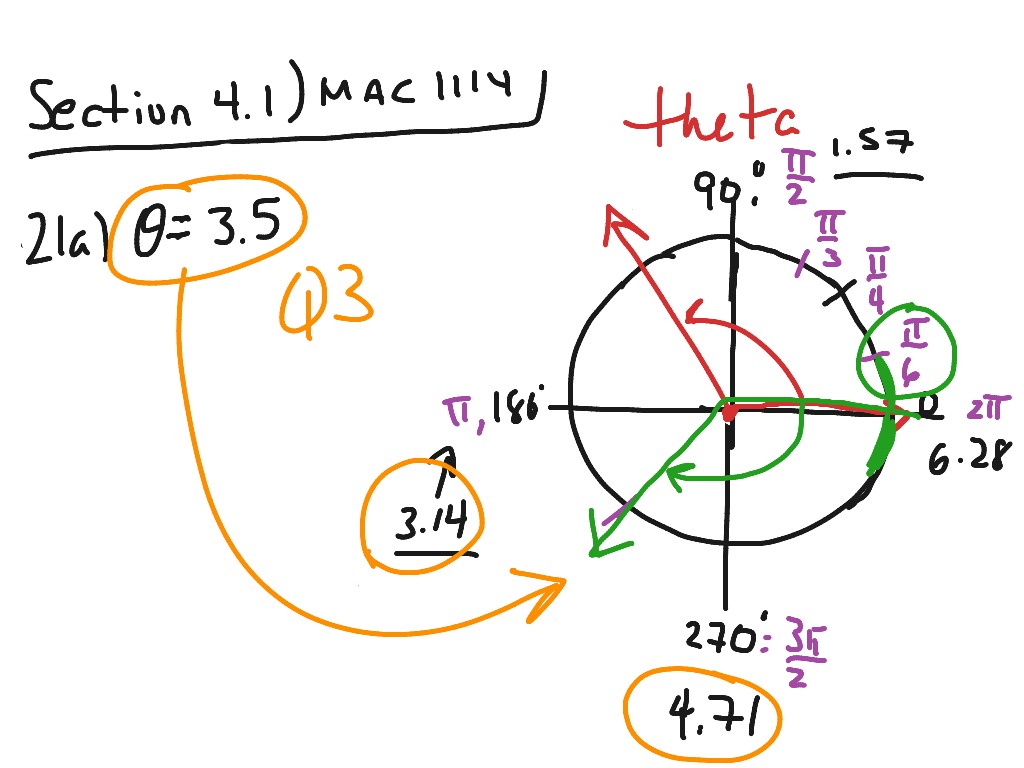 Section 4.1) MAC 1114
theta
21a) θ = 3.5
Q3
90°: π/2 1.57
π/3
π/4
π/6
π, 180°
0 2π
6.28
3.14
270°: 3π/2
4.71